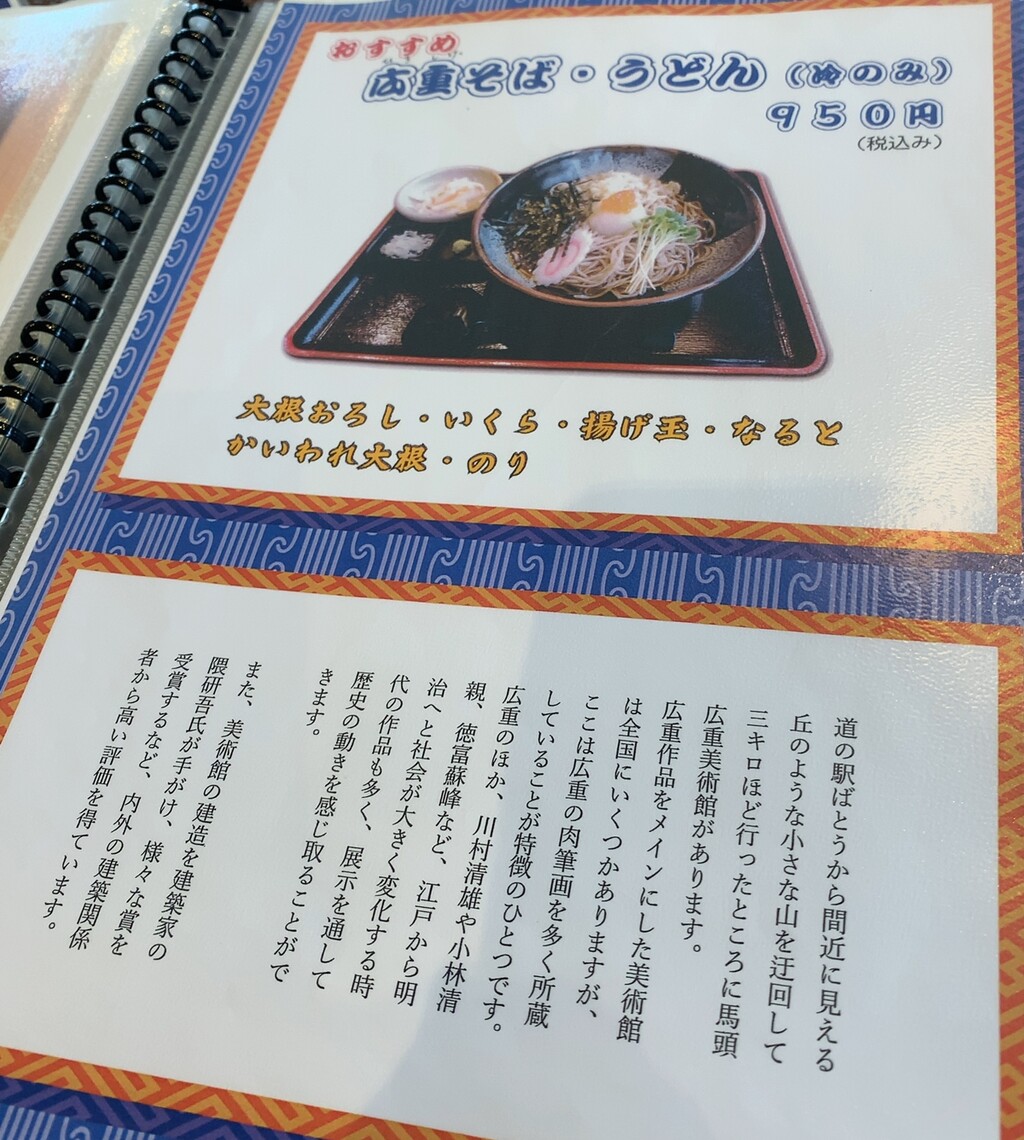 おすすめ
広重そば・うどん（冷のみ）
９５０円
（税込み）
大根おろし・いくら・揚げ玉・なると
かいわれ大根・のり
道の駅ばとうから間近に見える
丘のような小さな山を迂回して
三キロほど行ったところに馬頭
広重美術館があります。
広重作品をメインにした美術館
は全国にいくつかありますが、
ここは広重の肉筆画を多く所蔵
していることが特徴のひとつです。
広重のほか、川村清雄や小林清
親、徳富蘇峰など、江戸から明
治へと社会が大きく変化する時
代の作品も多く、展示を通して
歴史の動きを感じ取ることがで
きます。
また、美術館の建造を建築家の
隈研吾氏が手がけ、様々な賞を
受賞するなど、内外の建築関係
者から高い評価を得ています。